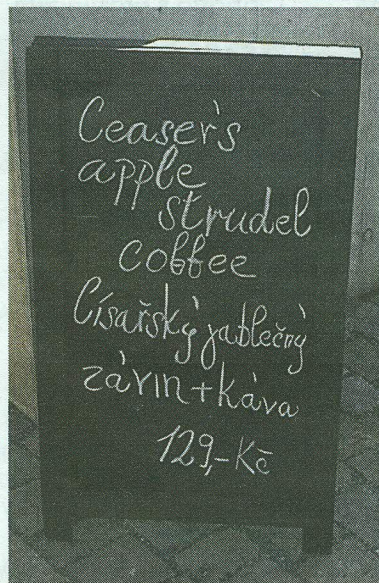 Ceaser's
apple
strudel
coffee
Císařský jablečný
závin+káva
129,-Kč